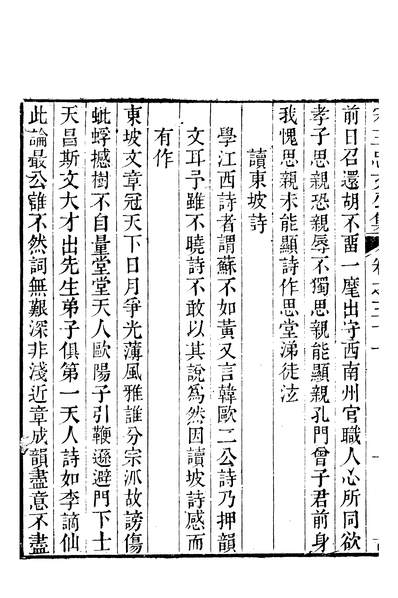 前日召還胡不畱一麾出守西南州官職人心所同欲
孝子思親恐親辱不獨思親能顯親孔門曾子君前身
我愧思親未能顯詩作思堂涕徒泫
讀東坡詩
學江西詩者謂蘇不如黃又言韓歐二公詩乃押韻
文耳予雖不曉詩不敢以其說爲然因讀坡詩感而
有作
東坡文章冠天下日月爭光薄風雅誰分宗派故謗傷
蚍蜉撼樹不自量堂堂天人歐陽子引鞭遜避門下士
天昌斯文大才出先生弟子俱第一天人詩如李謫仙
此論最公誰不然詞無艱深非淺近章成韻盡意不盡